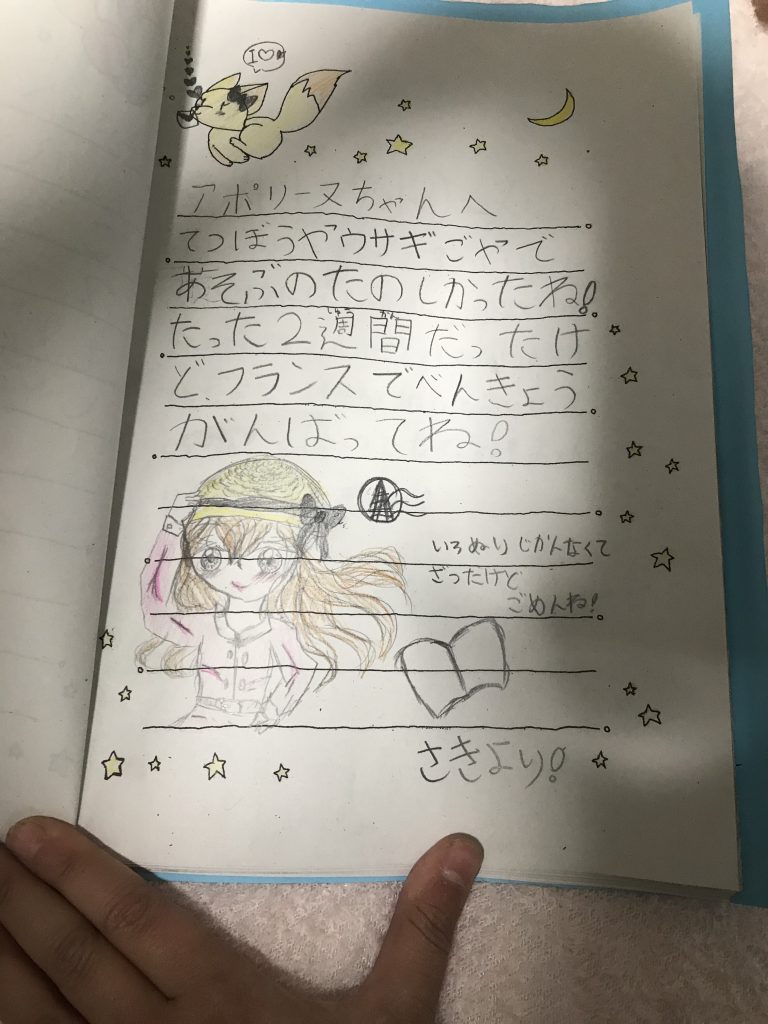 I♡
アポリーヌちゃんへ
てつぼうやウサギごやで
あそぶのたのしかったね!
たった2週間だったけ
ど、フランスでべんきょう
がんばってね!
いろぬりじかんなくて
ざったけど
ごめんね!
さきより!